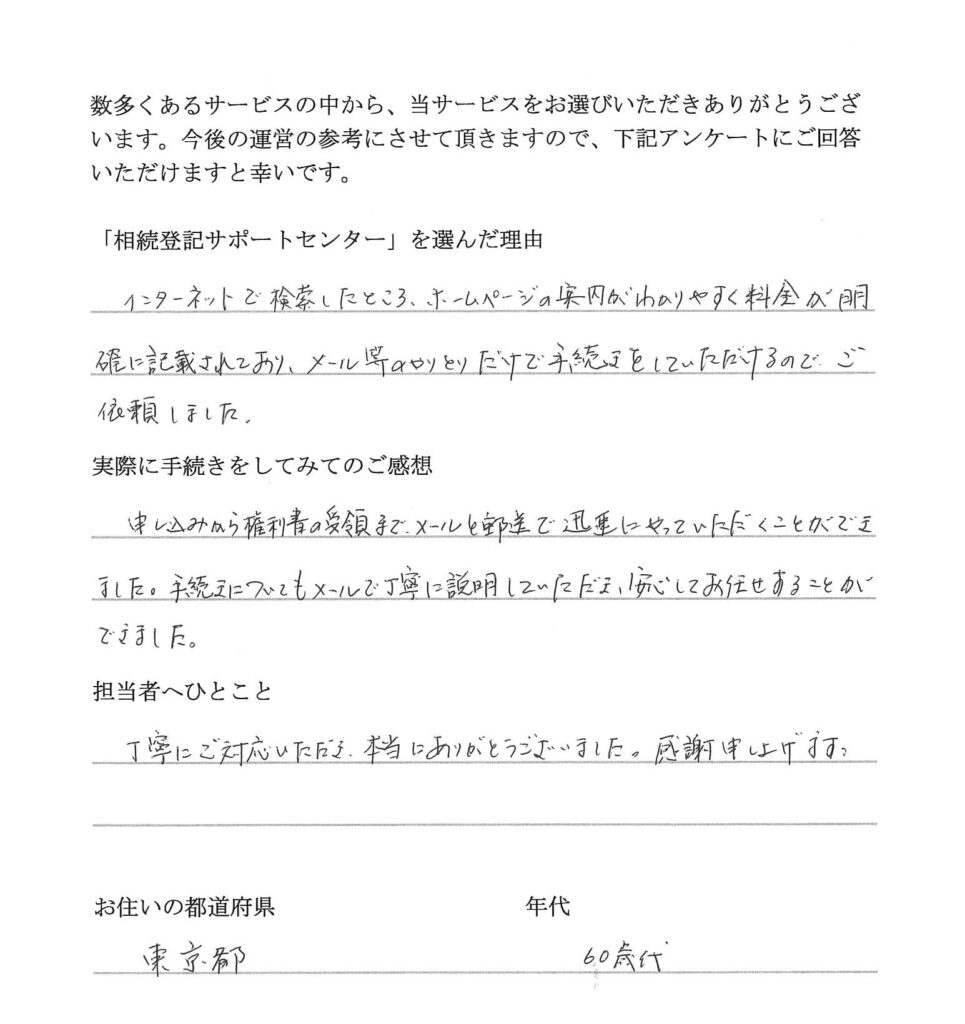 数多くあるサービスの中から、当サービスをお選びいただきありがとうござ
います。今後の運営の参考にさせて頂きますので、下記アンケートにご回答
いただけますと幸いです。
「相続登記サポートセンター」を選んだ理由
インターネットで検索したところ、ホームページの案内がわかりやすく料金が明
確に記載されており、メール等のやりとりだけで手続きをしていただけるので、ご
依頼しました。
実際に手続きをしてみてのご感想
申し込みから権利書の受領まで、メールと郵送で迅速にやっていただくことができ
ました。手続きについてもメールで丁寧に説明していただき、安心してお任せすることが
できました。
担当者へひとこと
丁寧にご対応いただき、本当にありがとうございました。感謝申し上げます。
お住いの都道府県 年代
東京都 60歳代